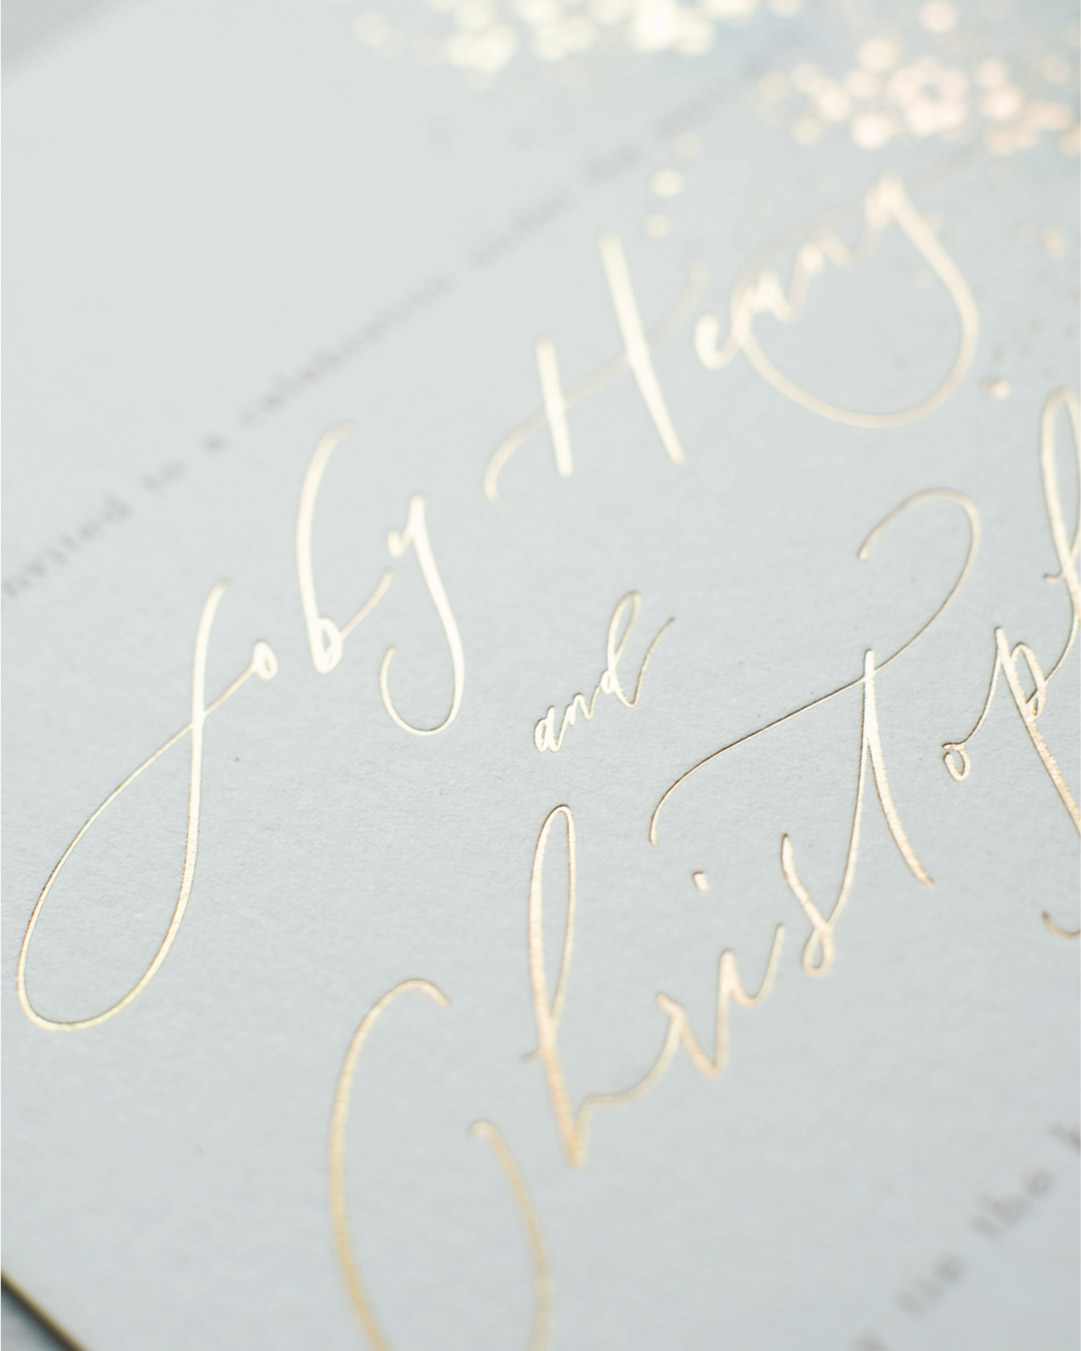 nvited to a celebration under the
Joby Heany
and
Christoph
the